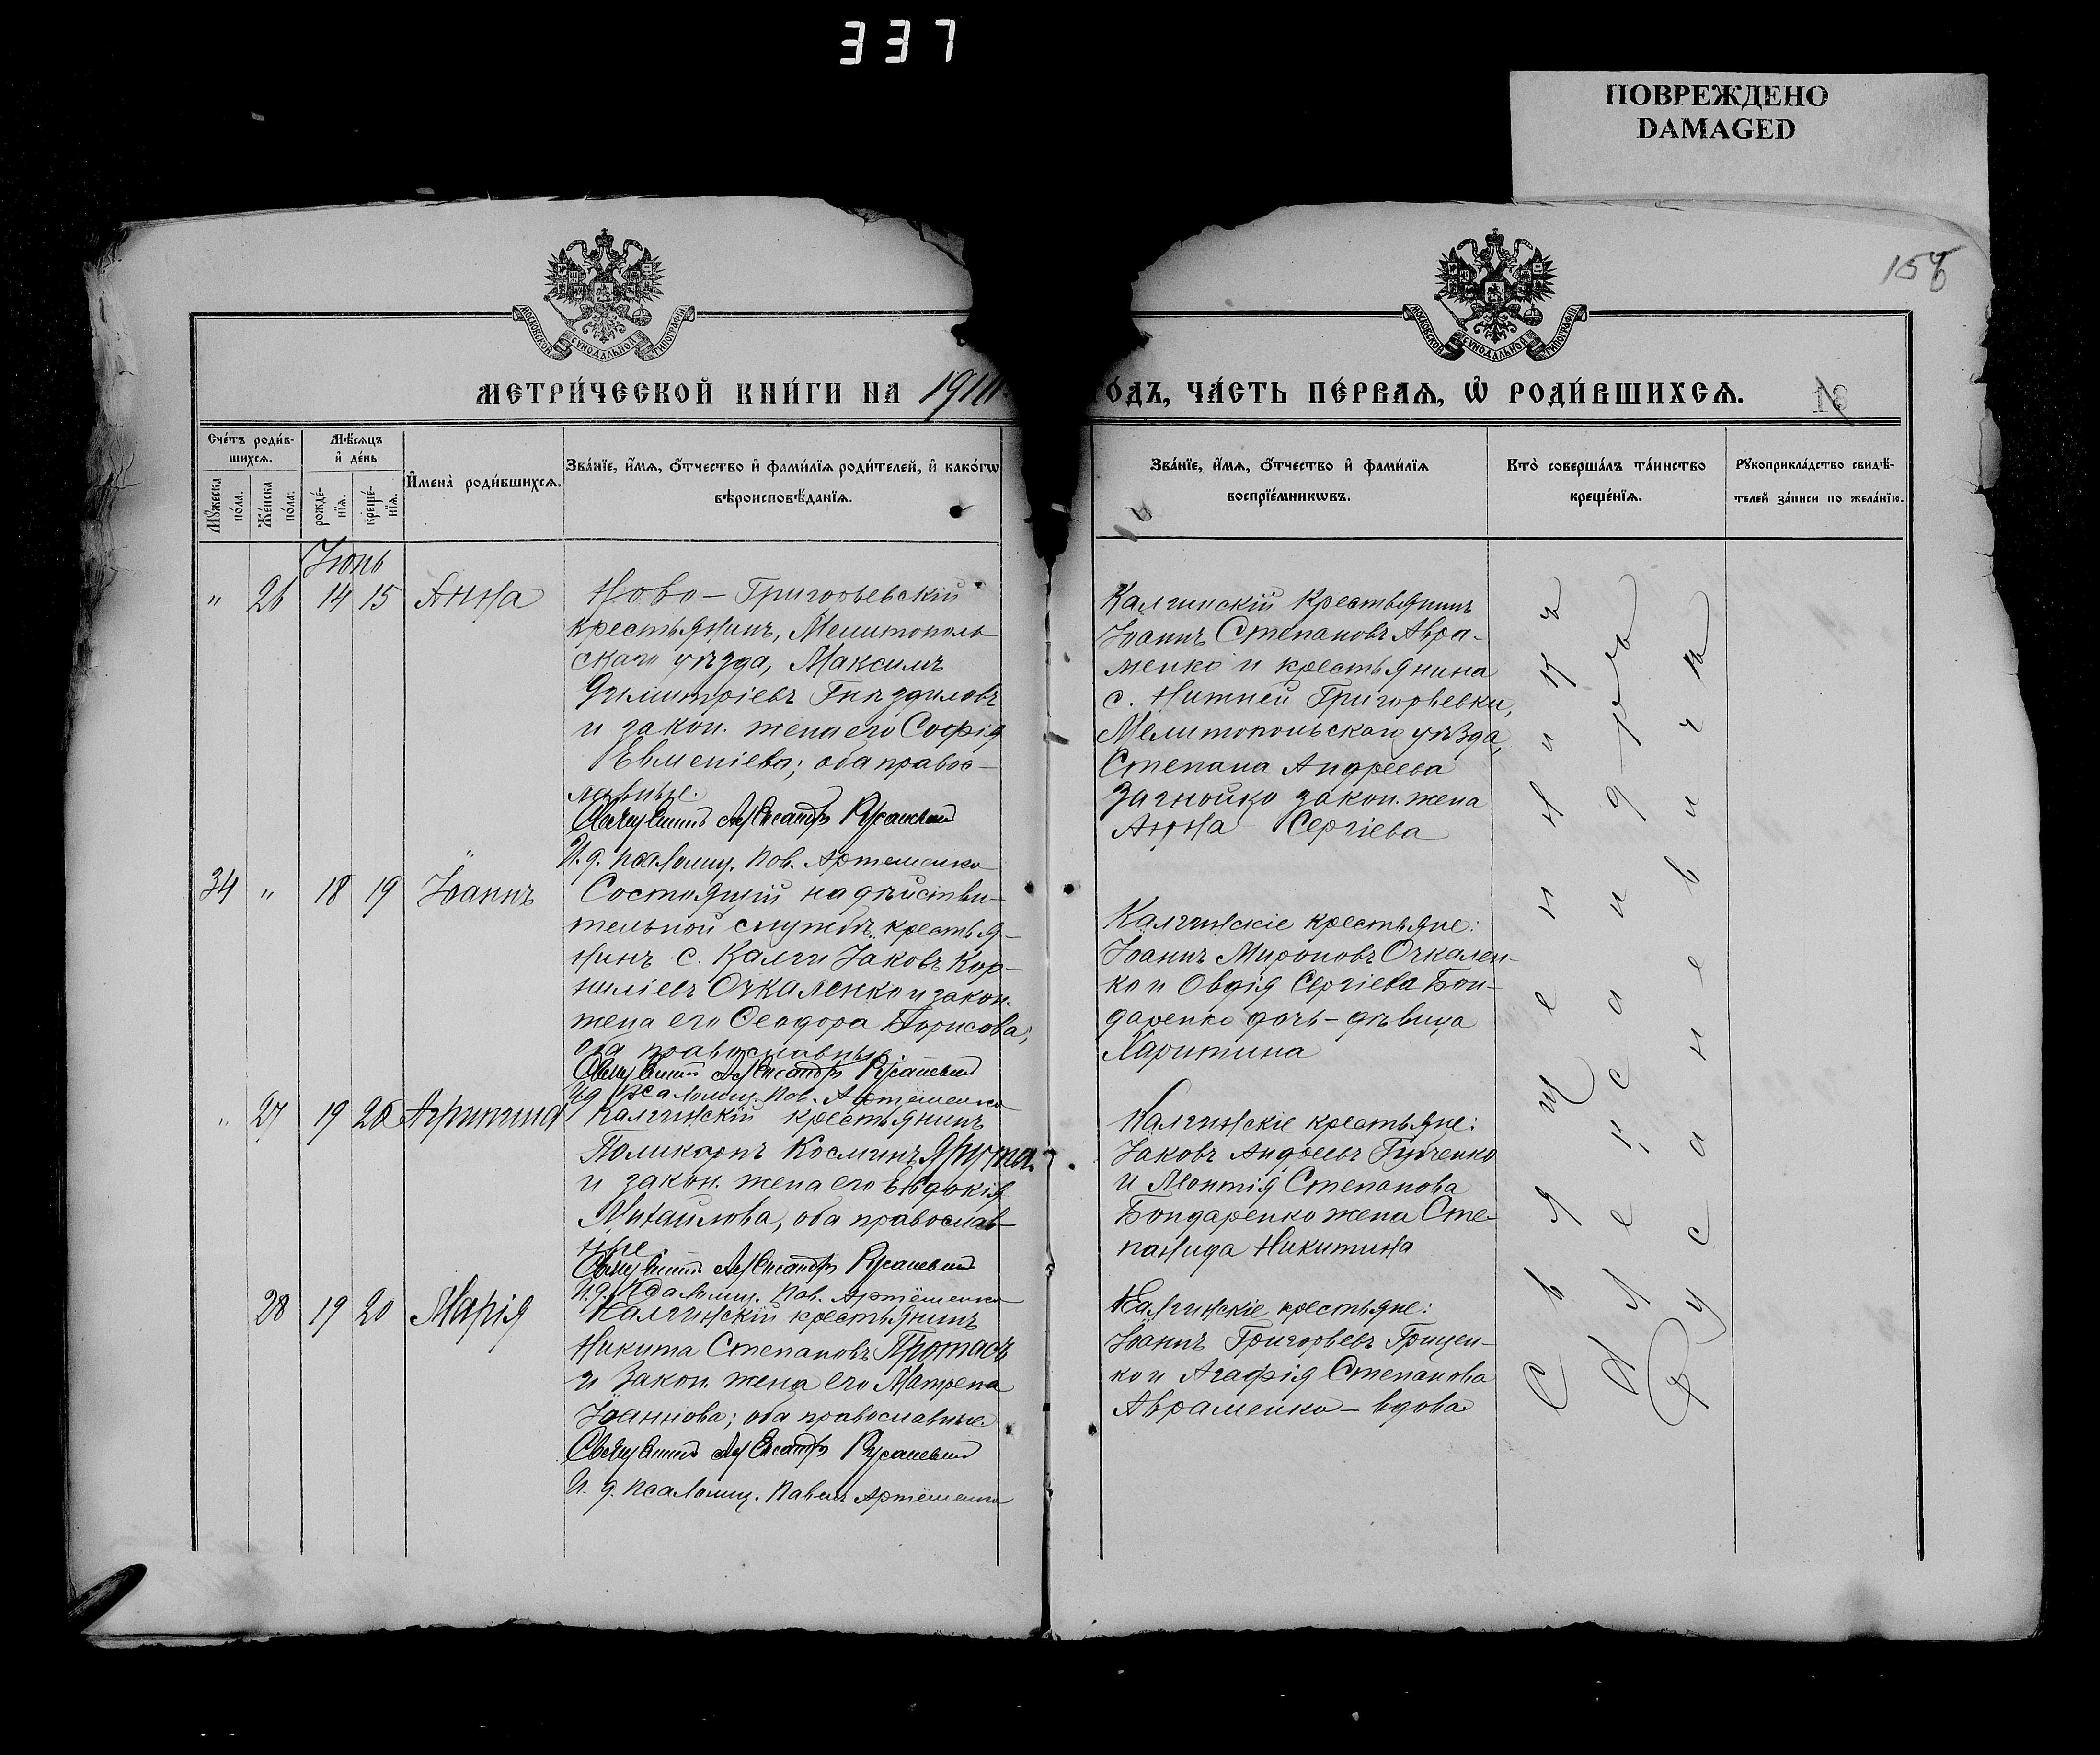 337
ПОВРЕЖДЕНО
DAMAGED
158
МОСКОВСКОЙ СѴНОДАЛЬНОЙ ТИПОГРАФІИ
МОСКОВСКОЙ СѴНОДАЛЬНОЙ ТИПОГРАФІИ
МЕТРИ́ЧЕСКОЙ КНИ́ГИ НА 191
О́ДЪ, ЧА́СТЬ ПЕ́РВАѦ, Ѡ҆ РОДИ́ВШИХСѦ.
Сче́тъ роди́в-
шихсѧ.
Мѣ́сѧцъ
и҆ де́нь
Мꙋ́жеска
по́ла.
Же́нска
по́ла.
рожде́-
нїѧ.
креще́-
нїѧ.
И҆мена̀ роди́вшихсѧ.
Зва́нїе, и҆́мѧ, ѻ҆́тчество и҆ фами́лїѧ роди́телей, и҆ како́гѡ
вѣроисповѣ́данїѧ.
Зва́нїе, и҆́мѧ, ѻ҆́тчество и҆ фами́лїѧ
воспрїе́мникѡвъ.
Кто̀ соверша́лъ та́инство
креще́нїѧ.
Рꙋкоприкла́дство свидѣ́-
телей за́писи по жела́нїю.
Іюнь
" 26 14 15 Анна
Ново-Григорьевскій
крестьянинъ, Мелитополь
скаго уѣзда, Максимъ
Димитріевъ
и закон. жена его Софія
Евменіева; оба правос-
лавные.
Священникъ Александръ Русаневичъ
И. д. псаломщ. Пав. Артеменко
Калгинскій крестьянинъ
Іоаннъ Степановъ Авра-
менко и крестьянина
с. Нижней Григорьевки,
Мелитопольскаго уѣзда,
Степана Андреева
закон. жена
Анна Сергіева
34 " 18 19 Іоаннъ
Состоящій на дѣйстви-
тельной службѣ крестья-
нинъ с. Калги Іаковъ Кор-
ниліевъ Очкаленко и закон.
жена его Ѳеодора Борисова;
оба православные
Священникъ Александръ Русаневичъ
И. д. псаломщ. Пав. Артеменко
Калгинскіе крестьяне:
Іоаннъ Мироновъ Очкален-
ко и Сергіева Бон-
даренко дочь-дѣвица
Харитина
" 27 19 20 Агрипина
Калгинскій крестьянинъ
Поликарпъ Косминъ
и закон. жена его Евдокія
Михаилова, оба православ-
ные
Священникъ Александръ Русаневичъ
И. д. псаломщ. Пав. Артеменко
Калгинскіе крестьяне:
Іаковъ Андреевъ
и Леонтія Степанова
Бондаренко жена Сте-
панида Никитина
28 19 20 Марія
Калгинскій крестьянинъ
Никита Степановъ Протасъ
и закон. жена его Матрена
Іоаннова; оба православные.
Священникъ Александръ Русаневичъ
И. д. псаломщ. Павелъ Артеменко
Калгинскіе крестьяне:
Іоаннъ Григорьевъ Грицен-
ко и Агафія Степанова
Авраменко - вдова
Священникъ
Александръ
Русаневичъ